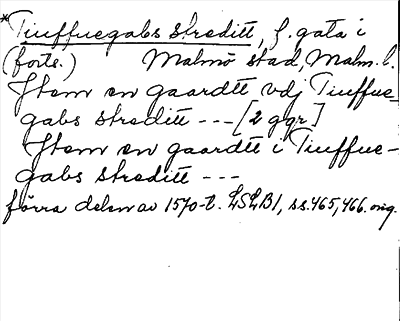 *Tiuffuegabs streditt, f. gata i
(forts.) Malmö stad, Malm. l.
Jtem en gaardtt vdj Tiuffue-
gabs streditt --- [2 ggr]
Jtem en gaardtt i Tiuffue-
gabs streditt ---
förra delen av 1570-t. LSLB1, ss. 465, 466. orig.